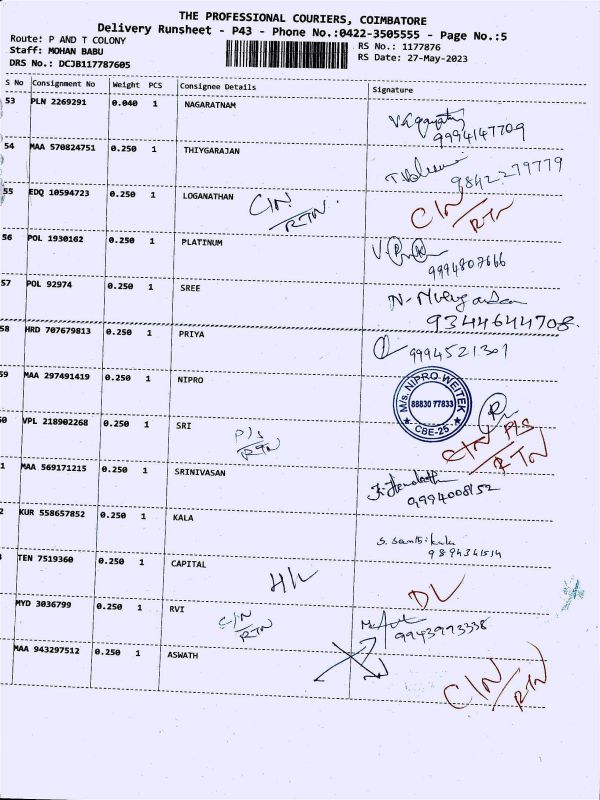 THE PROFESSIONAL COURIERS, COIMBATORE
Delivery Runsheet - P43 - Phone No.:0422-3505555 - Page No.:5
Route: P AND T COLONY
Staff: MOHAN BABU
DRS No.: DCJB117787605
RS No.: 1177876
RS Date: 27-May-2023
S No Consignment No Weight PCS Consignee Details Signature
53 PLN 2269291 0.040 1 NAGARATNAM
9994147709
54 MAA 570824751 0.250 1 THIYGARAJAN
9842279779
55 EDQ 10594723 0.250 1 LOGANATHAN C/N RTN C/N RTN
56 POL 1930162 0.250 1 PLATINUM
9994807666
57 POL 92974 0.250 1 SREE
9344644708
58 HRD 707679813 0.250 1 PRIYA 9994521301
59 MAA 297491419 0.250 1 NIPRO
M/s. NIPRO WEITEK
88830 77833
CBE-25
VPL 218902268 0.250 1 SRI P/S RTN C/N P/S RTN
MAA 569171215 0.250 1 SRINIVASAN
9994008152
KUR 558657852 0.250 1 KALA
9894341514
TEN 7519360 0.250 1 CAPITAL H/L DL
MYD 3036799 0.250 1 RVI C/N RTN
9943993338
MAA 943297512 0.250 1 ASWATH C/N RTN